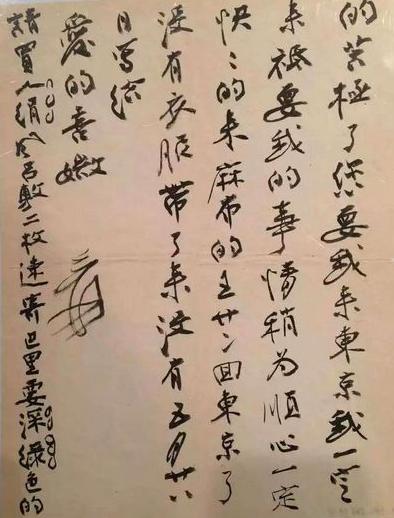 的苦極了你要我来東京我一定
来祇要我的事情稍为順心一定
快〻的来麻布的王廿二回東京了
沒有衣服帶了来沒有五月廿八
日写给
愛的喜
請買人絹風呂敷二枚速寄巴里要深綠色的